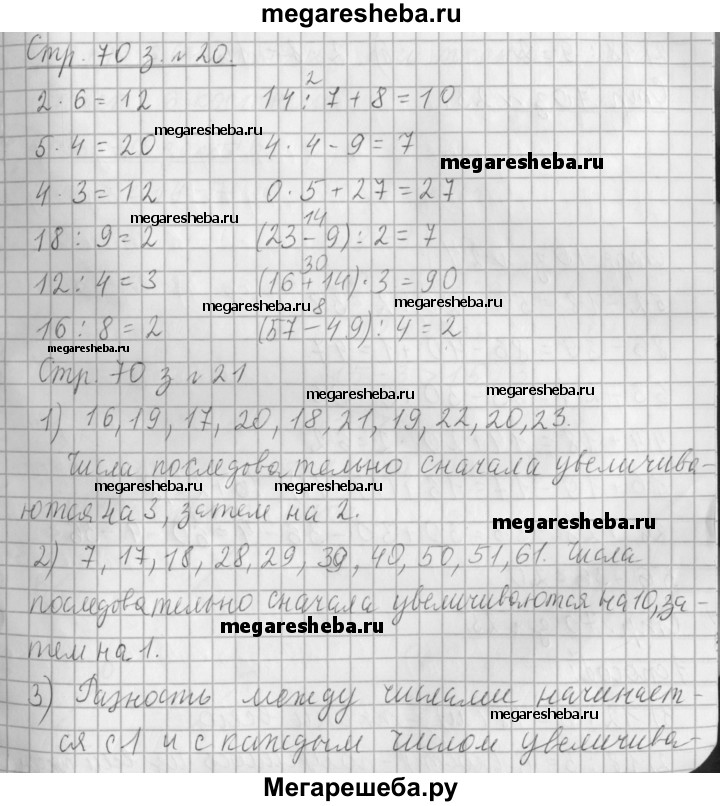 megaresheba.ru
Стр. 70 з. № 20.
2 · 6 = 12   14 : 7 + 8 = 10
2
megaresheba.ru
5 · 4 = 20   4 · 4 - 9 = 7
megaresheba.ru
4 · 3 = 12   0 · 5 + 27 = 27
megaresheba.ru
14
18 : 9 = 2   (23 - 9) : 2 = 7
30
12 : 4 = 3   (16 + 14) · 3 = 90
megaresheba.ru   megaresheba.ru
8
16 : 8 = 2   (57 - 49) : 4 = 2
megaresheba.ru   megaresheba.ru
Стр. 70 з № 21
megaresheba.ru   megaresheba.ru
1) 16, 19, 17, 20, 18, 21, 19, 22, 20, 23.
Числа последовательно сначала увеличива-
megaresheba.ru   megaresheba.ru
ются на 3, затем на 2.
megaresheba.ru
2) 7, 17, 18, 28, 29, 39, 40, 50, 51, 61. Числа
последовательно сначала увеличиваются на 10, за-
megaresheba.ru
тем на 1.
3) Разность между числами начинает-
megaresheba.ru
ся с 1 и с каждым числом увеличива-
Мегарешеба.ру